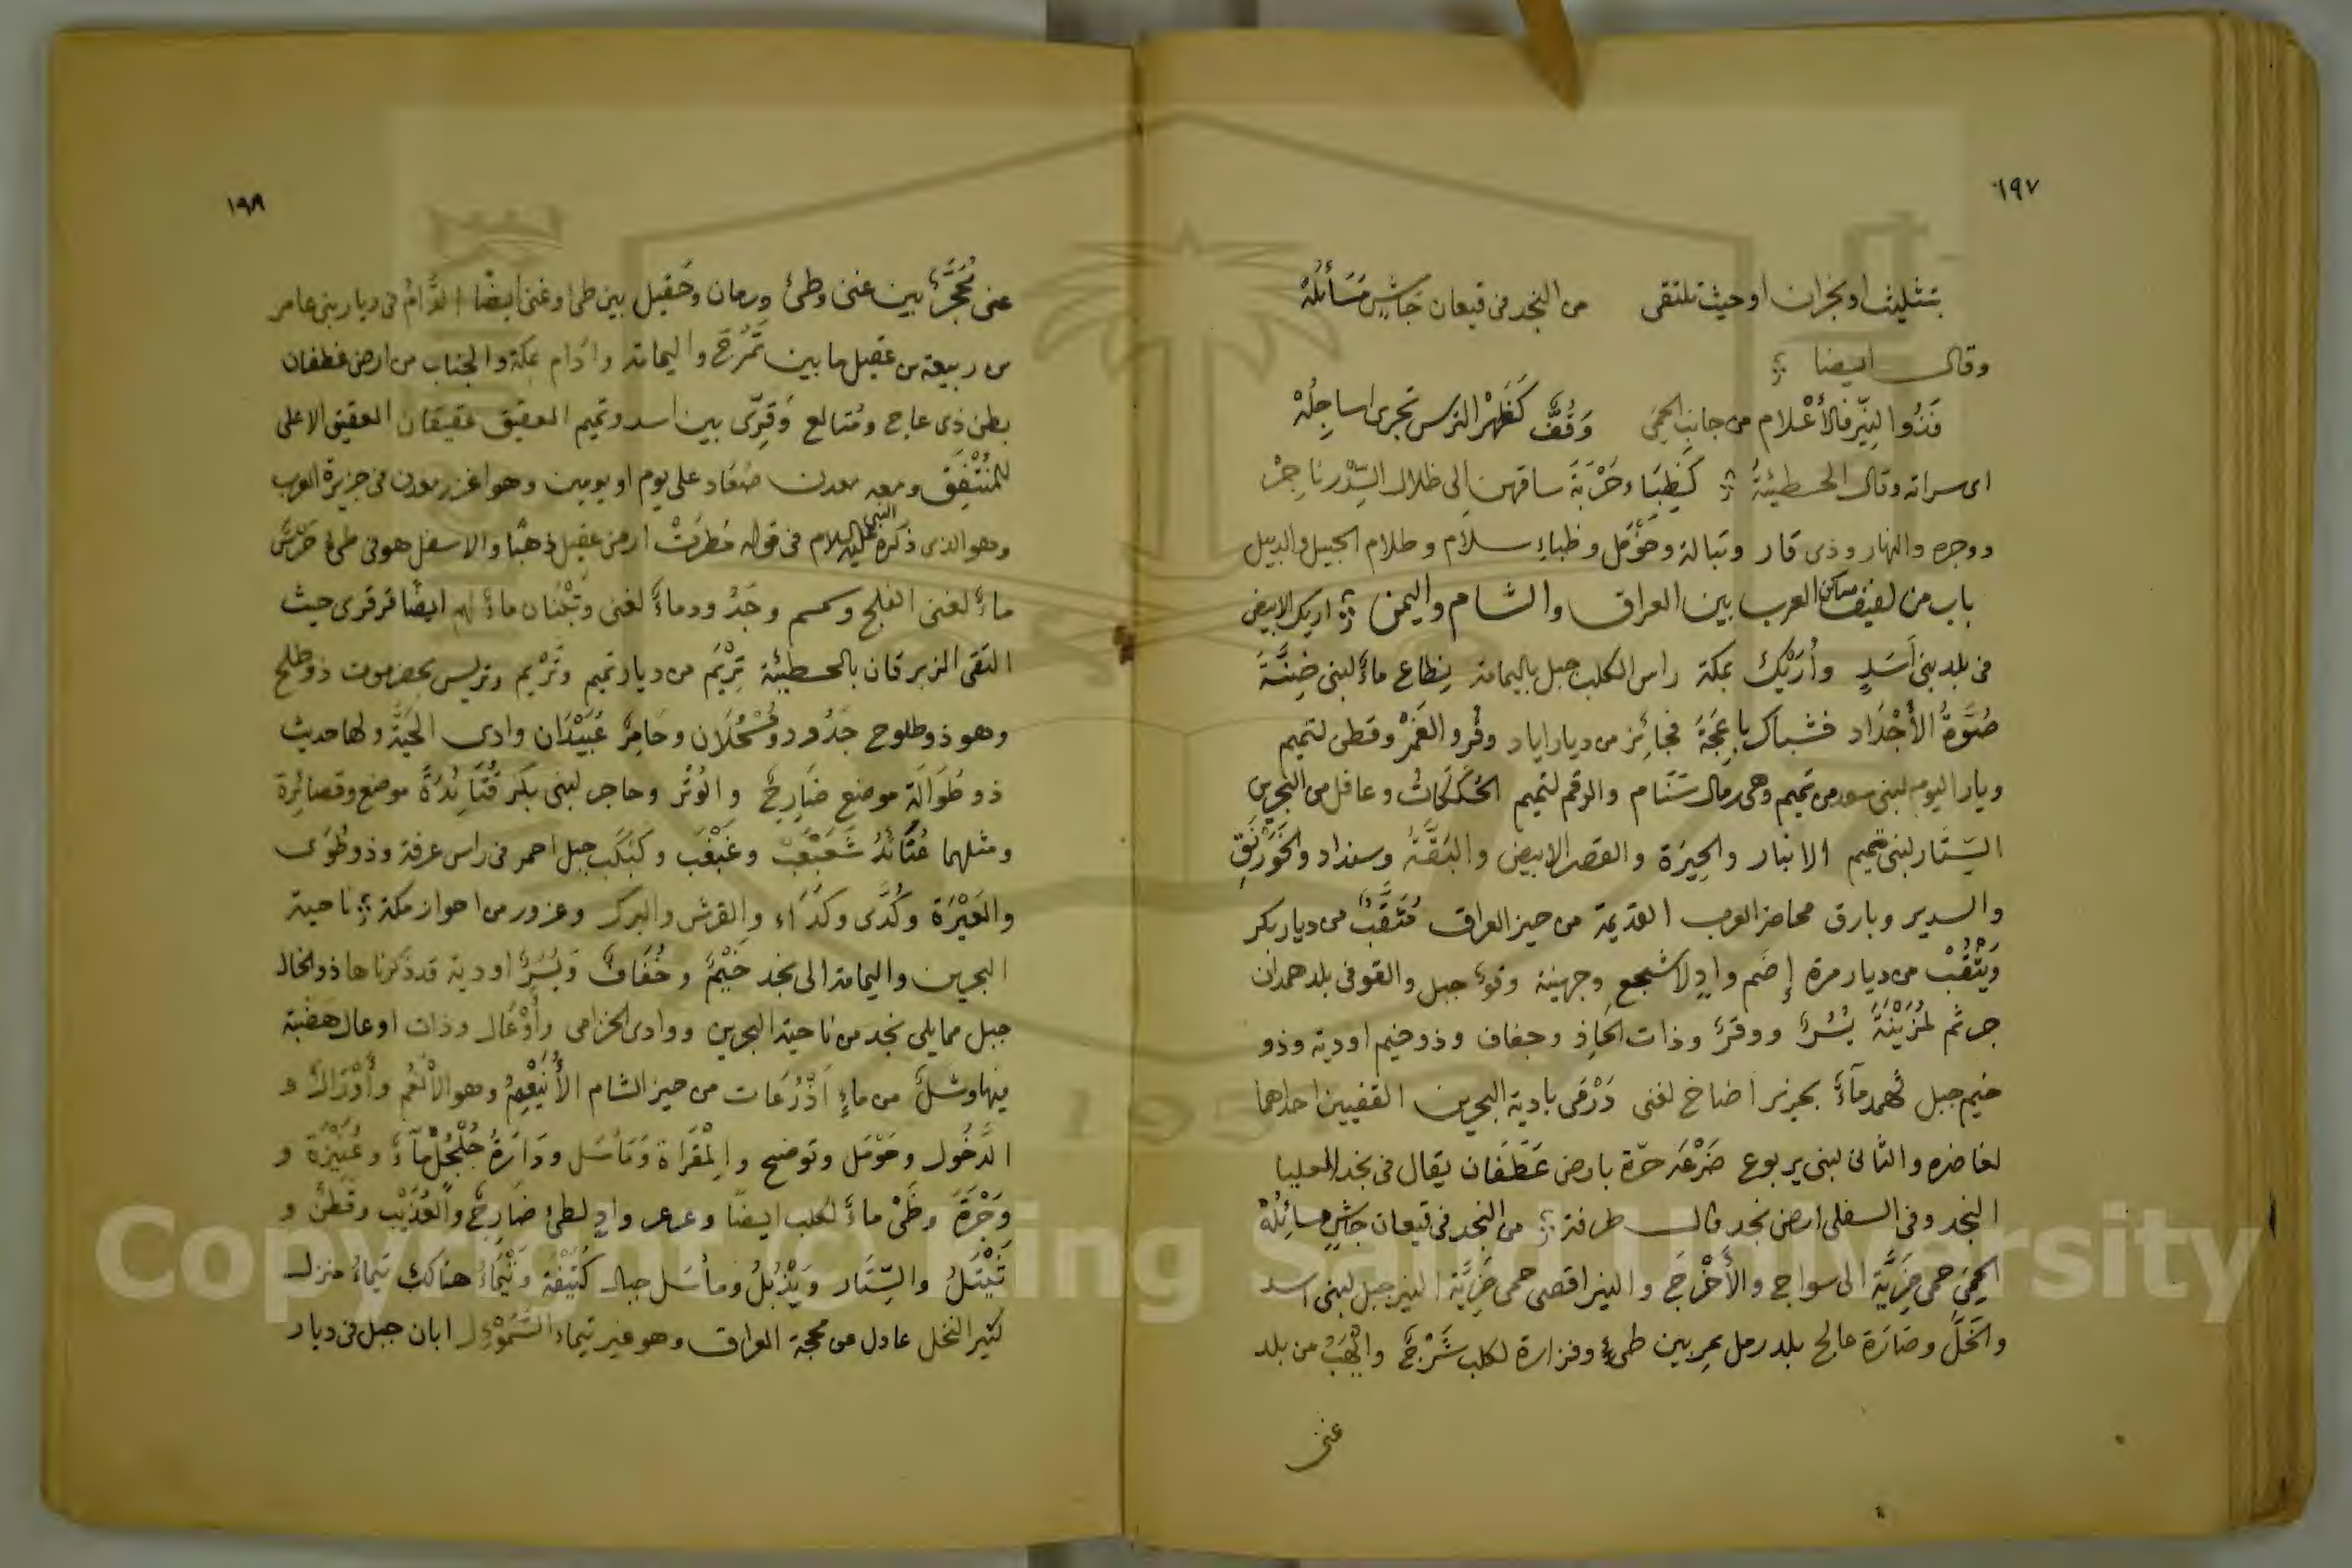 ١٩٧
بتثليث او نجران او حيث تلتقى من النجد فى قيعان جَاشٍ مَسَائلُهْ
وقال ايضا
فَذُوا لنِّيْر فالأَعْلام من جانب الحِمَى وَقُفٌّ كَظَهْر الترس تجرى اساجِلُهْ
اى سراته وقال الحطيئة كَظِبَاء وَجْرَةَ ساقهن الى ظلال السِّدْر ناجِرْ
ووجره والنهار وذى قار وتبالة وحَوْمَل وظباء سلام وظلام الجبيل والدبيل
باب من لفيف مساكن العرب بين العراق والشام واليمن اريك الابيض
فى بلد بنى أَسَدٍ وأُرَيْك بمكة راس الكلب جبل باليمامة نِطاع ماء لبنى ضِنَّةَ
ضُوَّةُ الأَجْدَاد فشباك باعِجَةَ فجائز من ديار اياد وقُرو الغَمْر وقطن لتميم
وبار اليوم لبنى سعد من تميم وهى رمال سَنَام والرقم لتميم الحُكَكَاتُ وعاقل من البحرين
السِتَار لبنى تميم الانبار والحِيرَة والقصر الابيض والبَقَّةُ وسنداد والخَوَرْنَقِ
والسدير وبارق محاضر العرب القديمة من حيز العراق مُثَقَّبٌ من ديار بكر
ويَثْقُبْ من ديار مرة إِضَم وادٍ لاشجع وجهينة وقوء جبل والقو فى بلد همدان
جر ثم لمُزَيْنَةَ يُسُرٌ ووقرٌ وذات الحاذ وجفاف وذو خيم اودية وذو
خيم جبل ثهمد ماءٌ بحزيز اضاخ لغنى دَرْقَى بادية البحرين القفيين احداهما
لغاضره والثانى لبنى يربوع ضَرْغَد حَرّة بارض غَطَفَان يقال فى نجد العليا
النجد وفى السفلى ارض نجد قال طرفة من النجد فى قيعان جاشٍ مسائِلُهْ
الحِمَى حمى ضَرِيَّة الى سواج والأَخْرَج والنير اقصى حمى ضَرِيَّة النير جبل لبنى اسد
والخَلّ وصَارَة عالج بلد رمل يمر بين طىء وفزارة لكلب شَرْجٌ والهَبُ من بلد
غنى
١٩٨
غنى مُحَجَّرٌ بين غنى وطئ ورمان وحَقيل بين طى وغنى ايضا الدَّامُ فى ديار بنى عامر
من ربيعة من عقيل ما بين تَمْرَحٌ واليمامة وادَام بمكة والجناب من ارض غطفان
بطن ذى عاج ومُتالع وقِرِّى بين اسد وتميم العقيق عقيقان العقيق الاعلى
للمُنْتَفِق ومعه معدن صُعَاد على يوم او يومين وهو اغزر معدن فى جزيرة العرب
وهو الذى ذكره النبى عليه السلام فى قوله مُطرَتْ ارض عقيل ذهبًا والاسفل هو فى طىء حَرَسٌ
ماءٌ لغنى الفلج وكسم وجَدُّ ودماءٌ لغنى وتَبْنَان ماءٌ لهم ايضًا قرقرى حيث
التقى الزبرقان بالحطيئة تِرْيَم من ديار تميم وتَريْم وتريس بحضرموت ذو طلح
وهو ذو طلوح جَدُود ومُسْحُلَان وحَامِرٌ عُبَيْدَان وادى الحَيَّة ولها حديث
ذو طُوَالَةٍ موضع ضَارِجٌ والوُتُر وحاجر لبنى بكر قُتَائِدُةُ موضع وقصائِرة
ومثلهما عُتَائدُ شَعَبْعَبْ وغَبْغَب وكَبْكَب جبل احمر فى راس عرفة وذو طُوَى
والعَيْرَة وكُدَى وكَدَاء والقرش والبرك وعزور من احواز مكة ناحية
البحرين واليمامة الى نجد خَيْمٌ وخُفَافٌ ويُسُرٌ اودية قد ذكرناها ذو الخال
جبل مما يلى نجد من ناحية البحرين ووادى الخزامى وأَوْعَال وذات اوعال هَضْبَة
فيها وشَلٌ من ماءٍ اَذْرُعَات من حيز الشام الأُنَيْعِمُ وهو الأَنْعُم وأَوْرَالٌ و
الدَّخُول وحَوْمَل وتوضح والمِقْرَاة ومَأسَل ودَارَةُ جُلْجُلٍ ماءٌ وعُنَيْزَة و
وَجْرَةَ وظَبْىُ ماءٌ لكلب ايضًا وعرعر وادٍ لطئ ضَارِجٌ والعُذَيْب وقَطَنٌ و
تَيْتَلُ والسِّتَار ويَذْبُلُ ومأسَل جبال كُتَيْفَة وتَيْمَاءُ هناك تيماءُ منزل
كثير النخل عادل عن محجة العراق وهو غير تيماء السَّمَوْءَل ابان جبل فى ديار